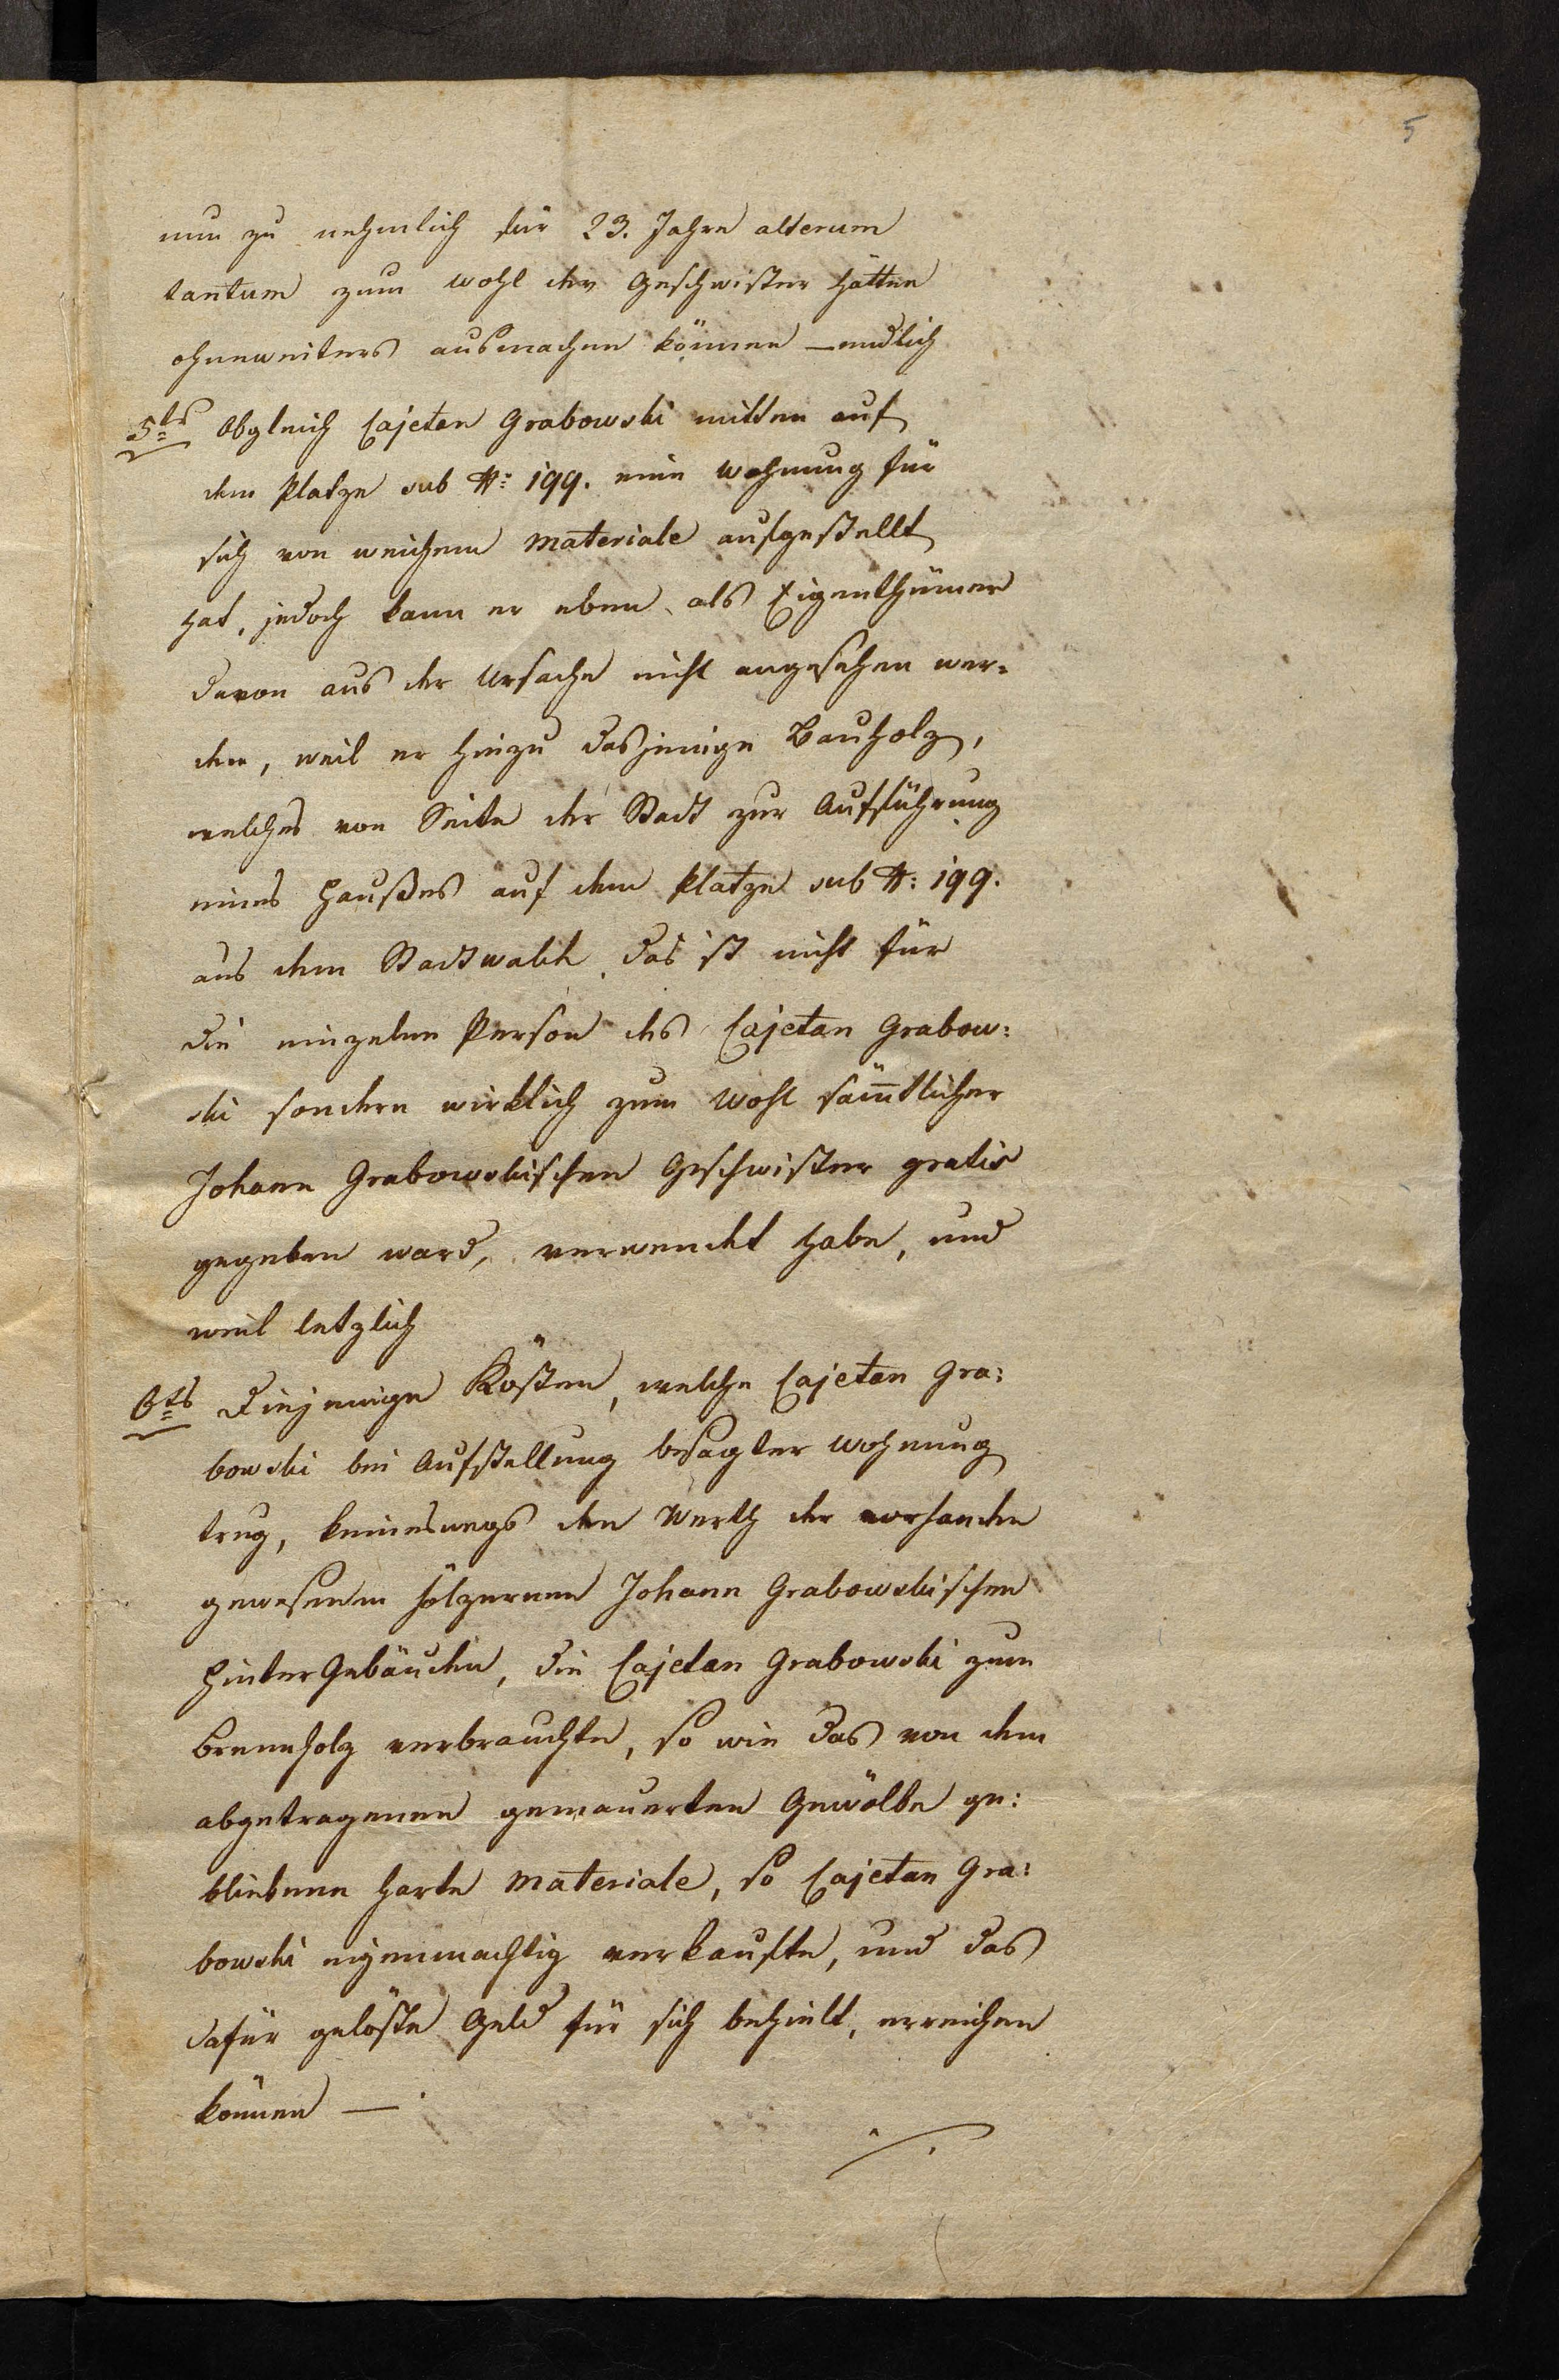 5
nun zu nehmlich für 23. Jahre alterum
tantum zum wohl der Geschwister hätten
ohneweiters ausmachen können – endlich
5tns Obgleich Cajetan Grabowski mitten auf
dem Platze sub N: 199. eine Wohnung für
sich von weichem Materiale aufgestellt
hat, jedoch kann er eben als Eigenthümer
davon aus der Ursache nicht angesehen wer=
den, weil er hinzu dasjenige Bauholz,
welches von Seite der Stadt zur Aufführung
eines Haußes auf dem Platze sub N: 199.
aus dem Stadtwalde das ist nicht für
die einzelne Person des Cajetan Grabow:
ski sondern wirklich zum Wohl sämtlicher
Johann Grabowskischen Geschwister gratis
gegeben ward, verwendet habe, und
weil letzlich
6tns Diejenige Kösten, welche Cajetan Gra:
bowski bei Aufstellung besagter Wohnung
trug, keineswegs den Werth der vorhanden
gewesenen hölzernen Johann Grabowskischen
HinterGebäuden, die Cajetan Grabowski zum
Brennholz verbrauchte, so wie das von dem
abgetragenen gemauerten Gewölbe ge:
bliebene harte Materiale, so Cajetan Gra:
bowski eigenmachtig verkaufte, und das
dafür gelöste Geld für sich behielt, erreichen
können –